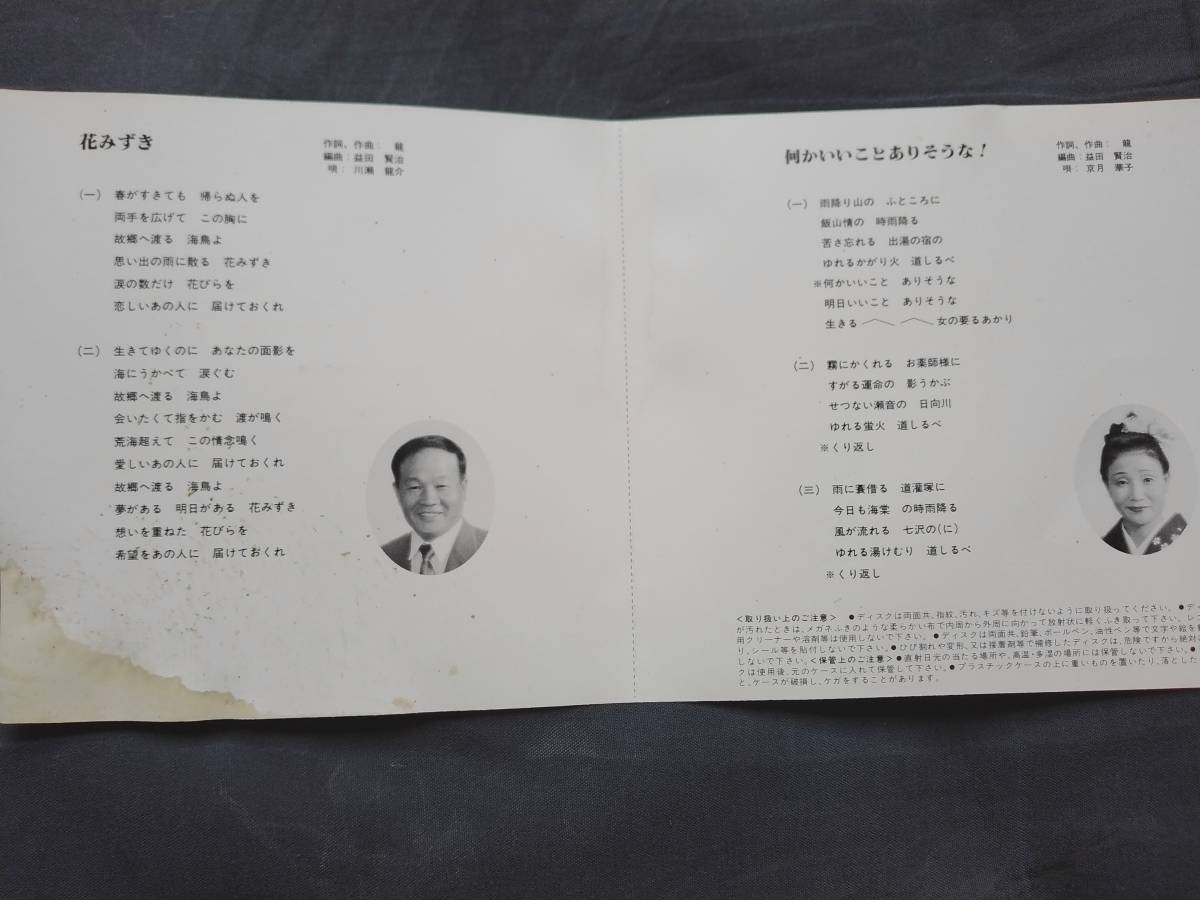 花みずき
作詞、作曲： 龍
編曲：益田 賢治
唄： 川瀬 龍介
(一) 春がすきても 帰らぬ人を
両手を広げて この胸に
故郷へ渡る 海鳥よ
思い出の雨に散る 花みずき
涙の数だけ 花びらを
恋しいあの人に 届けておくれ
(二) 生きてゆくのに あなたの面影を
海にうかべて 涙ぐむ
故郷へ渡る 海鳥よ
会いたくて指をかむ 渡が鳴く
荒海超えて この情念鳴く
愛しいあの人に 届けておくれ
故郷へ渡る 海鳥よ
夢がある 明日がある 花みずき
想いを重ねた 花びらを
希望をあの人に 届けておくれ
何かいいことありそうな！
作詞、作曲： 龍
編曲：益田 賢治
唄： 京月 華子
(一) 雨降り山の ふところに
飯山情の 時雨降る
苦さ忘れる 出湯の宿の
ゆれるかがり火 道しるべ
※何かいいこと ありそうな
明日いいこと ありそうな
生きる 女の要るあかり
(二) 霧にかくれる お薬師様に
すがる運命の 影うかぶ
せつない瀬音の 日向川
ゆれる蛍火 道しるべ
※くり返し
(三) 雨に蓑借る 道灌塚に
今日も海棠 の時雨降る
風が流れる 七沢の(に)
ゆれる湯けむり 道しるべ
※くり返し
<取り扱い上のご注意> ●ディスクは両面共、指紋、汚れ、キズ等を付けないように取り扱ってください。 ●デ
が汚れたときは、メガネふきのような柔らかい布で内周から外周に向かって放射状に軽くふき取って下さい。レ
用クリーナーや溶剤等は使用しないで下さい。●ディスクは両面共、鉛筆、ボールペン、油性ペン等で文字や絵を
り、シール等を貼付しないで下さい。●ひび割れや変形、又は接着剤等で補修したディスクは、危険ですから絶対
しないで下さい。<保管上のご注意> ●直射日光の当たる場所や、高温・多湿の場所には保管しないで下さい。●
クは使用後、元のケースに入れて保管して下さい。●プラスチックケースの上に重いものを置いたり、落とした
と、ケースが破損し、ケガをすることがあります。